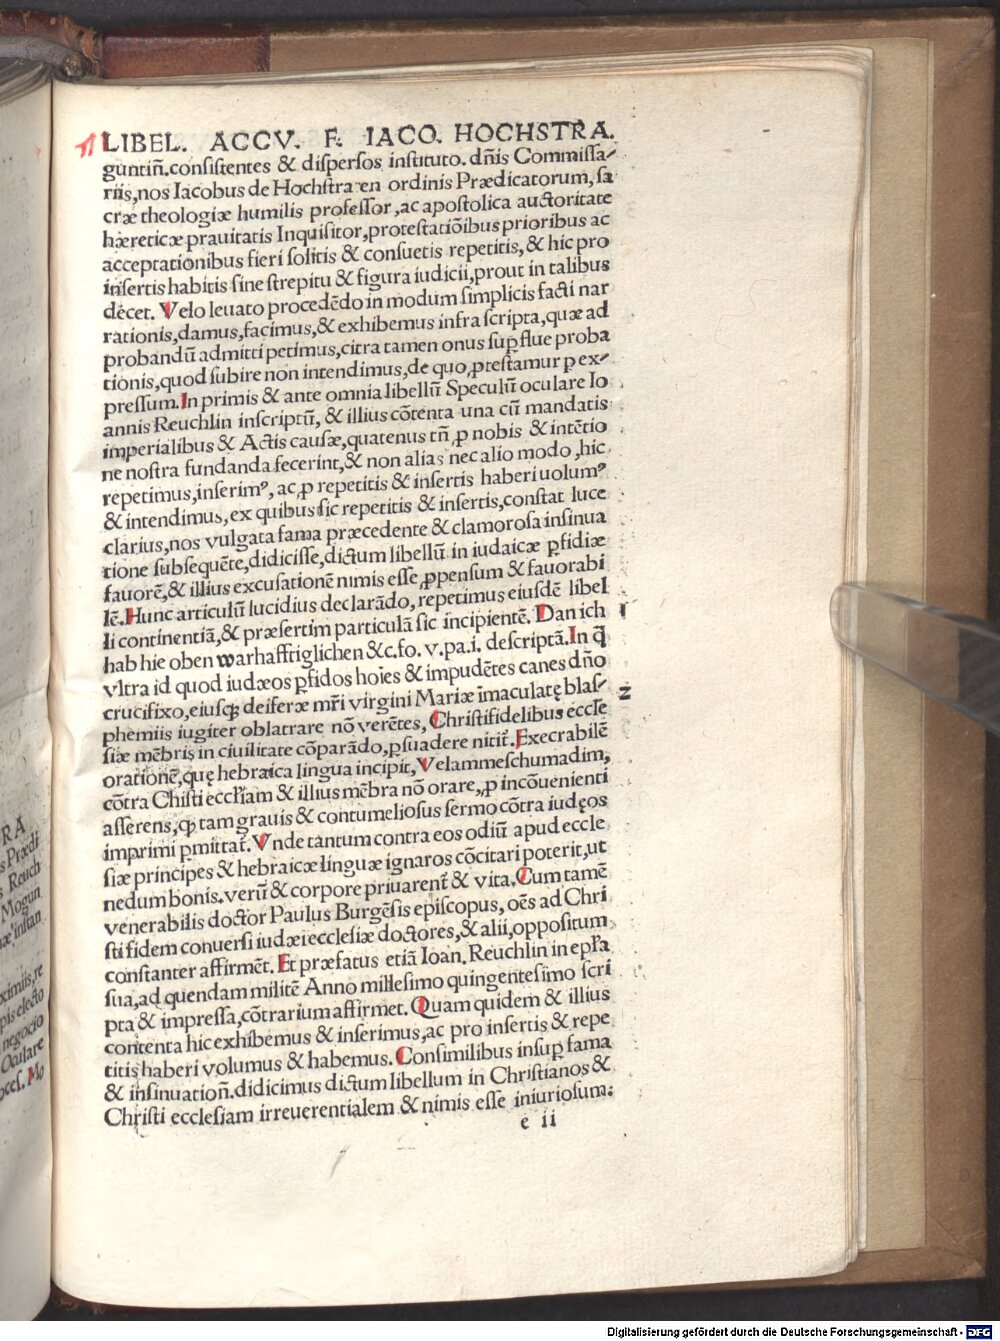 LIBEL. ACCV. F. IACO. HOCHSTRA.
guntiñ.consistentes & dispersos instituto. dñis Commissa⸗
riis,nos Iacobus de Hochstraten ordinis Prædicatorum, sa
cræ theologiæ humilis professor, ac apostolica auctoritate
hæreticæ prauitatis Inquisitor, protestatiõibus prioribus ac
acceptationibus fieri solitis & consuetis repetitis, & hic pro
insertis habitis sine strepitu & figura iudicii, prout in talibus
decet. Velo leuato procedẽdo in modum simplicis facti nar
rationis, damus, facimus, & exhibemus infra scripta, quæ ad
probandũ admitti petimus, citra tamen onus suꝑflue proba
tionis, quod subire non intendimus, de quo, ꝓtestamur ꝑ ex⸗
pressum. In primis & ante omnia libellũ Speculũ oculare Io
annis Reuchlin inscriptũ, & illius cõtenta una cũ mandatis
imperialibus & Actis causæ, quatenus tñ ꝓ nobis & intẽtio
ne nostra fundanda fecerint, & non alias nec alio modo, hic
repetimus, inserimꝰ, ac ꝓ repetitis & insertis haberi uolumꝰ
& intendimus, ex quibus sic repetitis & insertis, constat luce
clarius, nos vulgata fama præcedente & clamorosa insinua
tione subsequẽte, didicisse, dictum libellũ in iudaicæ ꝑfidiæ
fauorẽ, & illius excusationẽ nimis esse ꝓpensum & fauorabi
lẽ. Hunc articulũ lucidius declarãdo, repetimus eiusdẽ libel
li continentiã, & præsertim particulã sic incipientẽ. Dan ich
hab hie oben warhafftiglichen &c. fo. v. pa. i. descriptã. In q̃
vltra id quod iudæos ꝑfidos hoĩes & impudẽtes canes dño
crucifixo, eiusqꝫ deiferæ mr̃i virgini Mariæ ĩmaculatę blas⸗
phemiis iugiter oblatrare nõ verẽtes, Christifidelibus eccle
siæ mẽbris in ciuilitate cõparãdo, ꝑsuadere nitit̃. Execrabilẽ
orationẽ, quę hebraica lingua incipit, Velammeschumadim,
cõtra Christi eccl̃iam & illius mẽbra nõ orare, ꝓ incõuenienti
asserens, ꝙ tam grauis & contumeliosus sermo cõtra iudęos
imprimi ꝑmittat̃. Vnde tantum contra eos odiũ apud eccle
siæ principes & hebraicæ linguæ ignaros cõcitari poterit, ut
nedum bonis. verũ & corpore priuarent̃ & vita. Cum tamẽ
venerabilis doctor Paulus Burgẽsis episcopus, oẽs ad Chri
sti fidem conuersi iudæi ecclesiæ doctores, & alii, oppositum
constanter affirmẽt. Et præfatus etiã Ioan. Reuchlin in epl̃a
sua, ad quendam militẽ Anno millesimo quingentesimo scri
pta & impressa, cõtrarium affirmet. Quam quidem & illius
contenta hic exhibemus & inserimus, ac pro insertis & repe
titis haberi volumus & habemus. Consimilibus insuꝑ fama
& insinuatioñ. didicimus dictum libellum in Christianos &
Christi ecclesiam irreuerentialem & nimis esse iniuriosum:
e ii
1
2
Digitalisierung gefördert durch die Deutsche Forschungsgemeinschaft - DFG